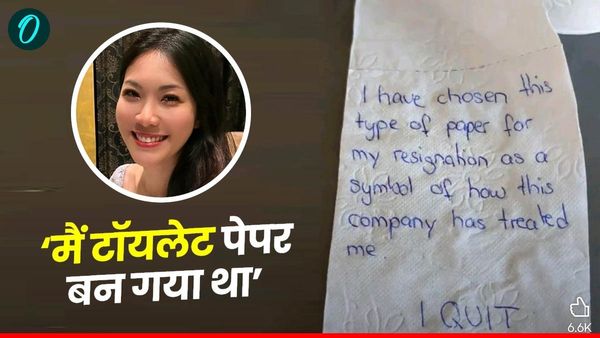 O
I have chosen this
type of paper for
my resignation as a
symbol of how this
company has treated
me.
I QUIT
‘मैं टॉयलेट पेपर
बन गया था’
6.6K